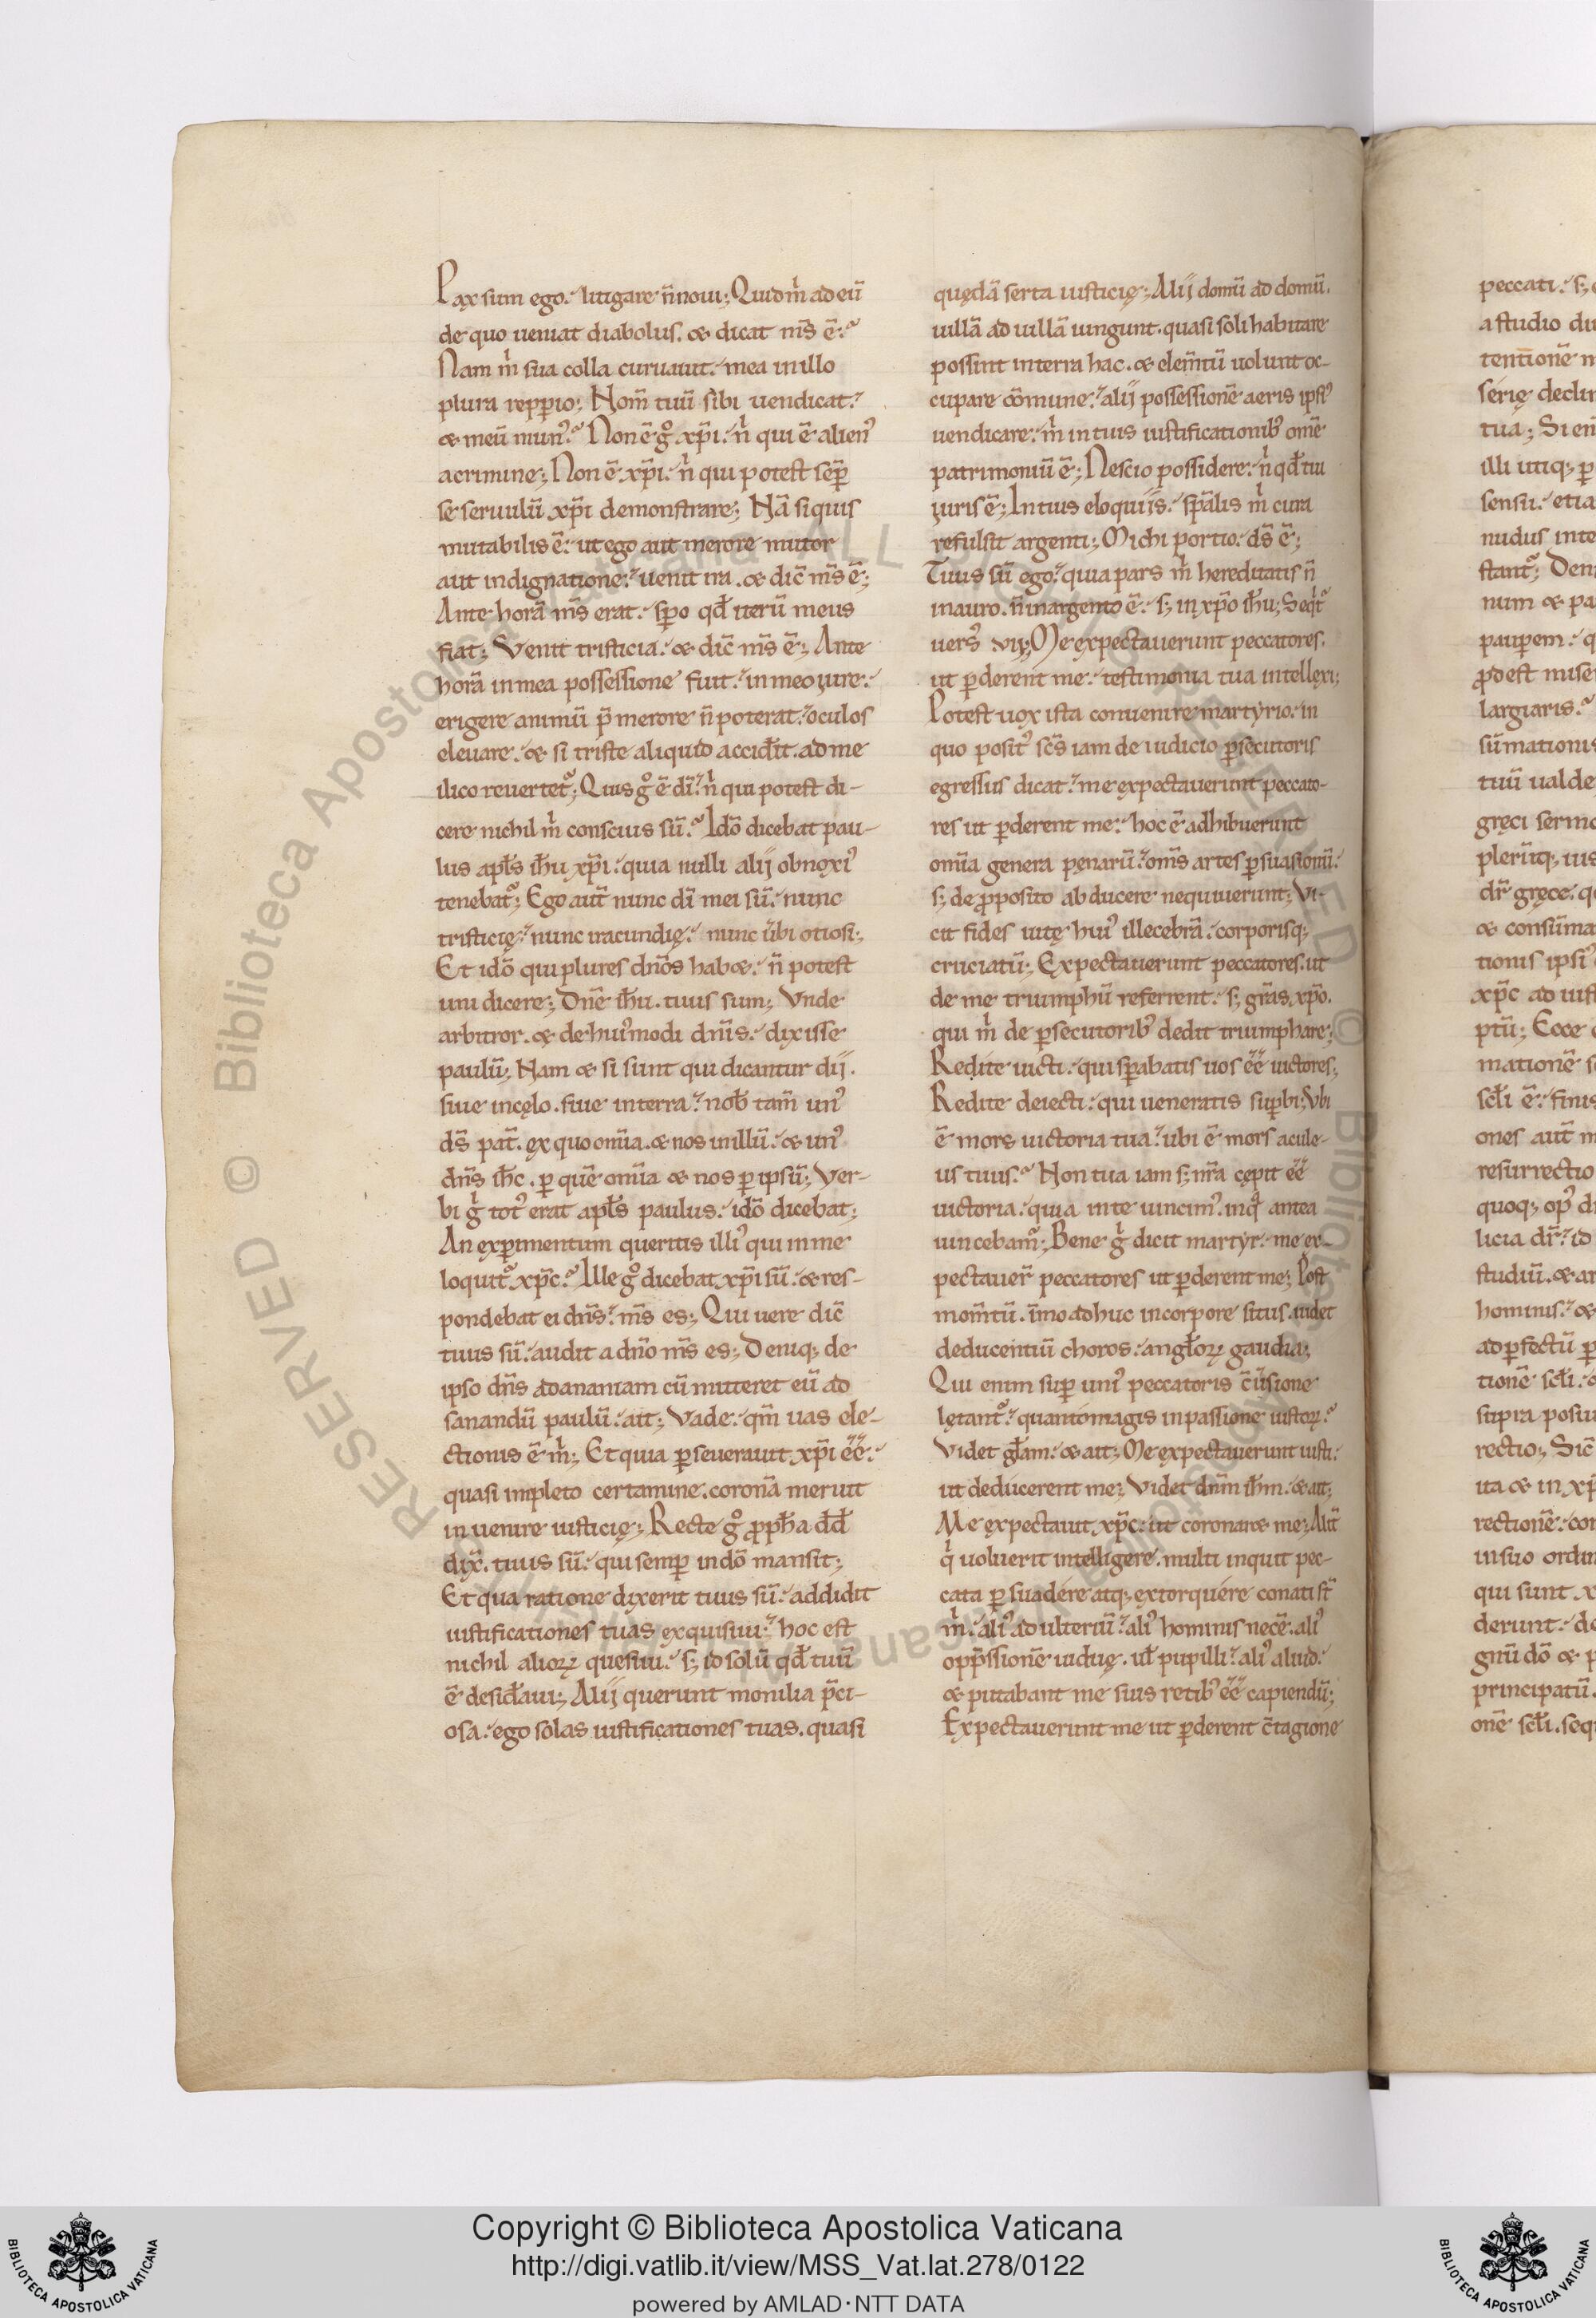 Pax sum ego. litigare n̄ noui; Quid m̍ ad eū
de quo ueniat diabolus. & dicat m̄s ē.
Nam m̍ sua colla curuauit. mea in illo
plura repperio; Nom̄ tuū sibi uendicat.
& meū munꝰ. Non ē gͦ xp̄i. n̍ qui ē alienꝰ
a crimine; Non ē xp̄i. n̍ qui potest sēp
se seruulū xp̄i demonstrare; Nā siquis
mutabilis ē. ut ego aut merore mutor
aut indignatione. uenit ira. & dic̄ m̄s ē;
Ante horā m̄s erat. sp̄o qd̄ iterū meus
fiat; Venit tristicia. & dic̄ m̄s ē; Ante
horā in mea possessione fuit. in meo iure.
erigere animū p̄ merore n̄ poterat. oculos
eleuare. & si triste aliquid accid̄it. ad me
ilico reuertet᷑; Quis gͦ ē dī. n̍ qui potest di-
cere nichil m̍ conscius sū. Idō dicebat pau-
lus apl̄s ih̄u xp̄i. quia nulli alij obnoxiꝰ
tenebat᷑; Ego aut̄ nunc dī mei sū. nunc
tristicię. nunc iracundię. nunc ūbi otiosi;
Et idō qui plures dn̄os hab&. n̄ potest
uni dicere; Dn̄e ih̄u. tuus sum; Vnde
arbitror. & de huiꝰmodi dn̄is. dixisse
paulū; Nam & si sunt qui dicantur dij.
siue in cęlo. siue in terra. nob̄ tam̄ unꝰ
ds̄ pat̄. ex quo om̄ia. & nos in illū. & unꝰ
dn̄s ih̄c. ꝑ quē om̄ia & nos ꝑ ipsū; Ver-
bi g̍ totꝰ erat apl̄s paulus. idō dicebat;
An exꝑimentum queritis illiꝰ qui in me
loquit᷑ xp̄c. Ille gͦ dicebat xp̄i sū. & res-
pondebat ei dn̄s. m̄s es; Qui uere dic̄
tuus sū. audit a dn̄o m̄s es; Deniq; de
ipso dn̄s ad ananiam cū mitteret eū ad
sanandū paulū. ait; Vade. qm̄ uas ele-
ctionis ē m̍; Et quia ꝑseuerauit xp̄i ēē.
quasi impleto certamine. coronā meruit
inuenire iusticię; Recte gͦ ꝓph̄a dd̄
dix̄. tuus sū. qui semꝑ in dō mansit;
Et qua ratione dixerit tuus sū. addidit
iustificationes tuas exquisiui. hoc est
nichil alioꝝ quesiui. s; id solū qd̄ tuū
ē desid̄aui; Alij querunt monilia p̄ci-
osa. ego solas iustificationes tuas. quasi
quędā serta iusticię; Alij domū ad domū.
uillā ad uillā iungunt. quasi soli habitare
possint in terra hac. & elem̄tū uolunt oc-
cupare cōmune. alij possessionē aeris ipsiꝰ
uendicare. m̍ in tuis iustificationibꝰ om̄e
patrimoniū ē; Nescio possidere. n̍ qd̄ tui
iuris ē; In tuis eloquijs. sp̄alis m̍ cura
refulsit argenti; Michi portio. ds̄ ē;
Tuus sū ego. quia pars m̍ hereditatis n̄
in auro. n̄ in argento ē. s; in xp̄o ih̄u; Seqt᷑
uersꝰ vij; Me expectauerunt peccatores.
ut ꝑderent me. testimonia tua intellexi;
Potest uox ista conuenire martyrio. in
quo positꝰ sc̄s iam de iudicio ꝑsecutoris
egressus dicat. me expectauerunt peccato-
res ut ꝑderent me. hoc ē adhibuerunt
om̄ia genera pęnarū. om̄s artes ꝑsuasionū.
s; de ꝓposito abducere nequiuerunt; Vi-
cit fides uitę huiꝰ illecebrā. corporisq;
cruciatū; Expectauerunt peccatores. ut
de me triumphū referrent. s; gr̄as. xp̄o.
qui m̍ de ꝑsecutoribꝰ dedit triumphare;
Redite uicti. qui sꝑabatis uos ēē uictores;
Redite deiecti. qui ueneratis suꝑbi; Vbi
ē mors uictoria tua. ubi ē mors acule-
us tuus. Non tua iam s; nr̄a cępit ēē
uictoria. quia in te uincimꝰ. in q̍ antea
uincebam᷑; Bene g̍ dicit martyr. me ex-
pectauer̄ peccatores ut ꝑderent me; Post
mom̄tū. īmo adhuc in corpore situs. uidet
deducentiū choros. angl̄oꝝ gaudia;
Qui enim suꝑ uniꝰ peccatoris c̄ūsione
lętant᷑. quanto magis in passione iustoꝝ.
Videt gl̄am. & ait; Me expectauerunt iusti.
ut deducerent me; Videt dn̄m ih̄m. & ait;
Me expectauit xp̄c. ut coronar& me; Alit̄
q̍ uoluerit intelligere. multi inquit pec-
cata ꝑsuadere atq; extorquere conati st̄
m̍. aliꝰ adulteriū. aliꝰ hominis necē. aliꝰ
opp̄ssionē uiduę. ul̄ pupilli. aliꝰ aliud.
& putabant me suis retibꝰ ēē capiendū;
Expectauerunt me ut ꝑderent c̄tagione
Copyright © Biblioteca Apostolica Vaticana
http://digi.vatlib.it/view/MSS_Vat.lat.278/0122
powered by AMLAD·NTT DATA